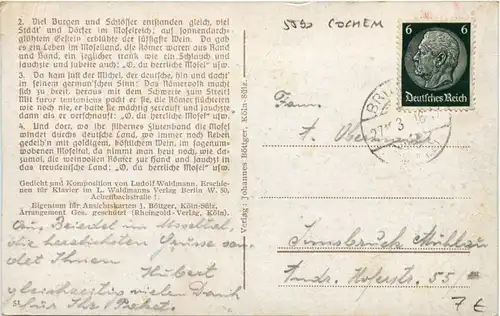 2. Viel Burgen und Schlösser entstanden gleich, viel
Städt' und Dörfer im Moselreich; auf sonnendurch-
glühtem Gestein erblühte der süffigste Wein. Da gab
es ein Leben im Moselland, die Römer waren aus Rand
und Band, ein jeglicher trank wie ein Schlauch und
jauchzte und jubelte auch: „O, du herrliche Mosel" usw.
3. Da kam just der Michel, der deutsche, hin und dacht'
in seinem german'schen Sinn: Das Römervolk macht
sich zu breit, heraus mit dem Schwerte zum Streit!
Mit furor teutonicus packt er sie, die Römer flüchteten
wie noch nie, er hatte sie mächtig zerzaust und jauchzte
dann als er verschnauft: „O, du herrliche Mosel" usw.
4. Und dort, wo ihr silbernes Flutenband die Mosel
windet durchs deutsche Land, wo immer noch Reben
gedeih'n mit goldigem, köstlichem Wein, im sagenum-
wobenen Moseltal, da nimmt man heut noch, wie da-
zumal, die weinvollen Römer zur Hand und jauchzt in
das treudeutsche Land: „O, du herrliche Mosel" usw.
Gedicht und Komposition von Ludolf Waldmann. Erschie-
nen für Klavier im L. Waldmanns Verlag Berlin W. 50,
Achenbachstraße 1.
Eigentum für Ansichtskarten J. Böttger, Köln-Sülz.
Arrangement Ges. geschützt (Rheingold-Verlag, Köln).
die herzlichsten Grüsse sen-
det Ihnen
Hubert
gleichzeitig vielen Dank
für Ihr Paket.
Verlag: Johannes Böttger, Köln-Sülz.
5590 COCHEM
6 6
Deutsches Reich
Fam.
A.
Innsbruck Mühlau
Andr. Hoferstr. 55
7 €